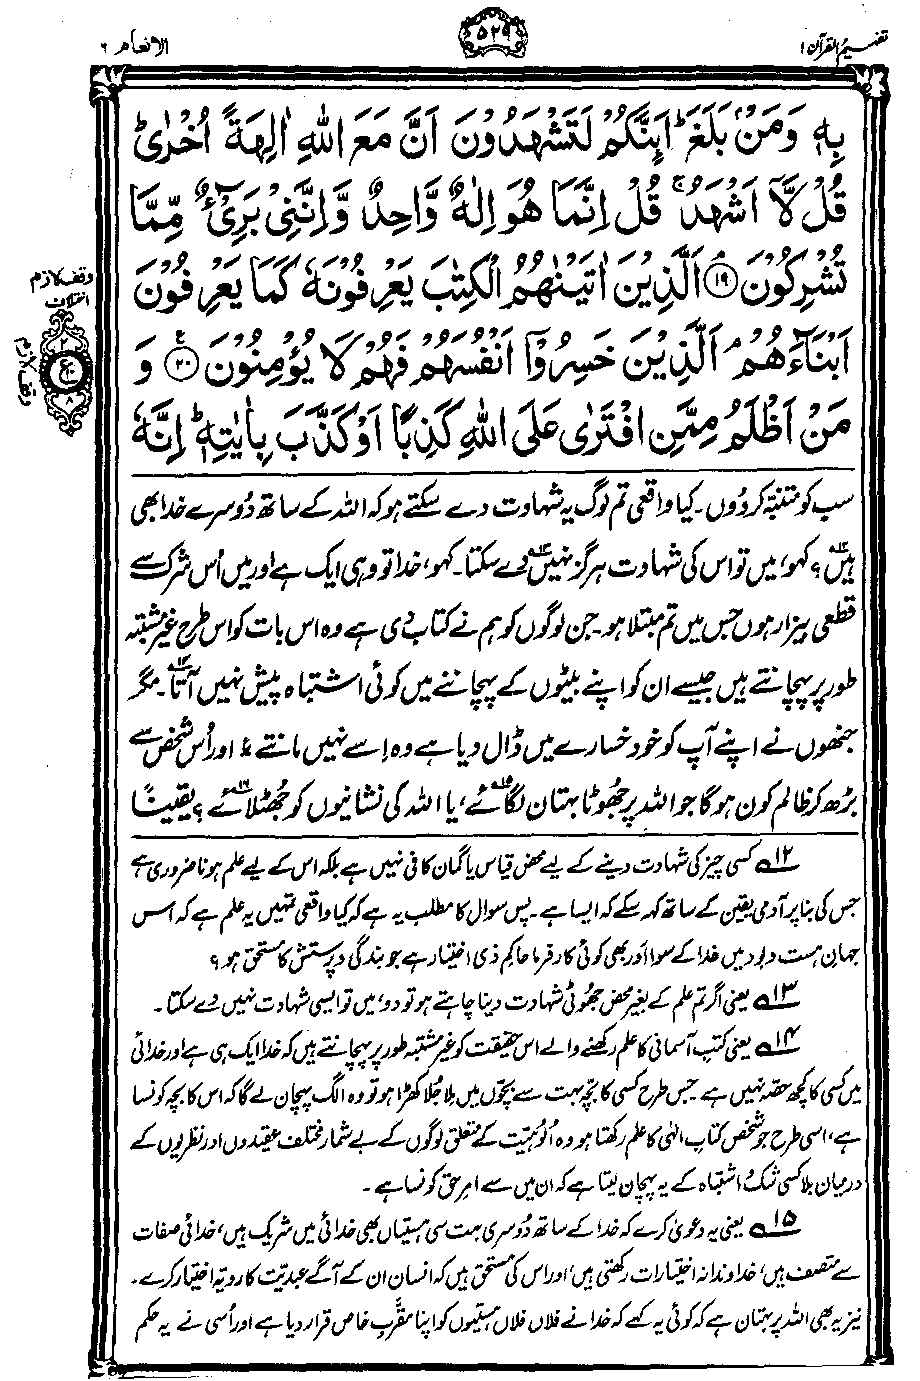 تفہیم القرآن ۱
۵۲۹
الانعام ۶
بِهٖ وَمَنْۢ بَلَغَ ؕ اَئِنَّكُمْ لَتَشْهَدُوْنَ اَنَّ مَعَ اللّٰهِ اٰلِهَةً اُخْرٰى ؕ
قُلْ لَّاۤ اَشْهَدُ ۚ قُلْ اِنَّمَا هُوَ اِلٰهٌ وَّاحِدٌ وَّاِنَّنِيْ بَرِيْٓءٌ مِّمَّا
تُشْرِكُوْنَ ۘ ﴿۱۹﴾ اَلَّذِيْنَ اٰتَيْنٰهُمُ الْكِتٰبَ يَعْرِفُوْنَهٗ كَمَا يَعْرِفُوْنَ
اَبْنَآءَهُمْ ۘ اَلَّذِيْنَ خَسِرُوْۤا اَنْفُسَهُمْ فَهُمْ لَا يُؤْمِنُوْنَ ﴿۲۰﴾ وَ
مَنْ اَظْلَمُ مِمَّنِ افْتَرٰى عَلَى اللّٰهِ كَذِبًا اَوْ كَذَّبَ بِاٰيٰتِهٖ ؕ اِنَّهٗ
وقف لازم
وقف لازم
سب کو متنبہ کر دُوں۔ کیا واقعی تم لوگ یہ شہادت دے سکتے ہو کہ اللہ کے ساتھ دُوسرے خدا بھی
ہیں؟۱۲ کہو، میں تو اس کی شہادت ہرگز نہیں دے سکتا۔۱۳ کہو، خدا تو وہی ایک ہے اور میں اُس شرک سے
قطعی بیزار ہوں جس میں تم مبتلا ہو۔ جن لوگوں کو ہم نے کتاب دی ہے وہ اس بات کو اس طرح غیر مشتبہ
طور پر پہچانتے ہیں جیسے ان کو اپنے بیٹوں کے پہچاننے میں کوئی اشتباہ پیش نہیں آتا۔۱۴ مگر
جنھوں نے اپنے آپ کو خود خسارے میں ڈال دیا ہے وہ اِسے نہیں مانتے ؏ اور اُس شخص سے
بڑھ کر ظالم کون ہوگا جو اللہ پر جھوٹا بہتان لگائے،۱۵ یا اللہ کی نشانیوں کو جھٹلائے؟۱۶ یقیناً
۱۲؎ کسی چیز کی شہادت دینے کے لیے محض قیاس یا گمان کافی نہیں ہے بلکہ اس کے لیے علم ہونا ضروری ہے
جس کی بنا پر آدمی یقین کے ساتھ کہہ سکے کہ ایسا ہے۔ پس سوال کا مطلب یہ ہے کہ کیا واقعی تمہیں یہ علم ہے کہ اس
جہانِ ہست و بود میں خدا کے سوا اَور بھی کوئی کارفرما حاکمِ ذی اختیار ہے جو بندگی و پرستش کا مستحق ہو؟
۱۳؎ یعنی اگر تم علم کے بغیر محض جھُوٹی شہادت دینا چاہتے ہو تو دو، میں تو ایسی شہادت نہیں دے سکتا۔
۱۴؎ یعنی کتبِ آسمانی کا علم رکھنے والے اس حقیقت کو غیر مشتبہ طور پر پہچانتے ہیں کہ خدا ایک ہی ہے اور خدائی
میں کسی کا کچھ حصہ نہیں ہے۔ جس طرح کسی کا بچّہ بہت سے بچّوں میں مِلا جُلا کھڑا ہو تو وہ الگ پہچان لے گا کہ اس کا بچّہ کونسا
ہے، اسی طرح جو شخص کتابِ الٰہی کا علم رکھتا ہو وہ اُلوہیّت کے متعلق لوگوں کے بے شمار مختلف عقیدوں اور نظریوں کے
درمیان بلا کسی شک و اشتباہ کے یہ پہچان لیتا ہے کہ ان میں سے امرِ حق کونسا ہے۔
۱۵؎ یعنی یہ دعویٰ کرے کہ خدا کے ساتھ دُوسری بہت سی ہستیاں بھی خدائی میں شریک ہیں، خدائی صفات
سے متصف ہیں، خداوندانہ اختیارات رکھتی ہیں، اور اس کی مستحق ہیں کہ انسان ان کے آگے عبدیّت کا رویّہ اختیار کرے۔
نیز یہ بھی اللہ پر بہتان ہے کہ کوئی یہ کہے کہ خدا نے فلاں فلاں ہستیوں کو اپنا مقرّبِ خاص قرار دیا ہے اور اُسی نے یہ حکم